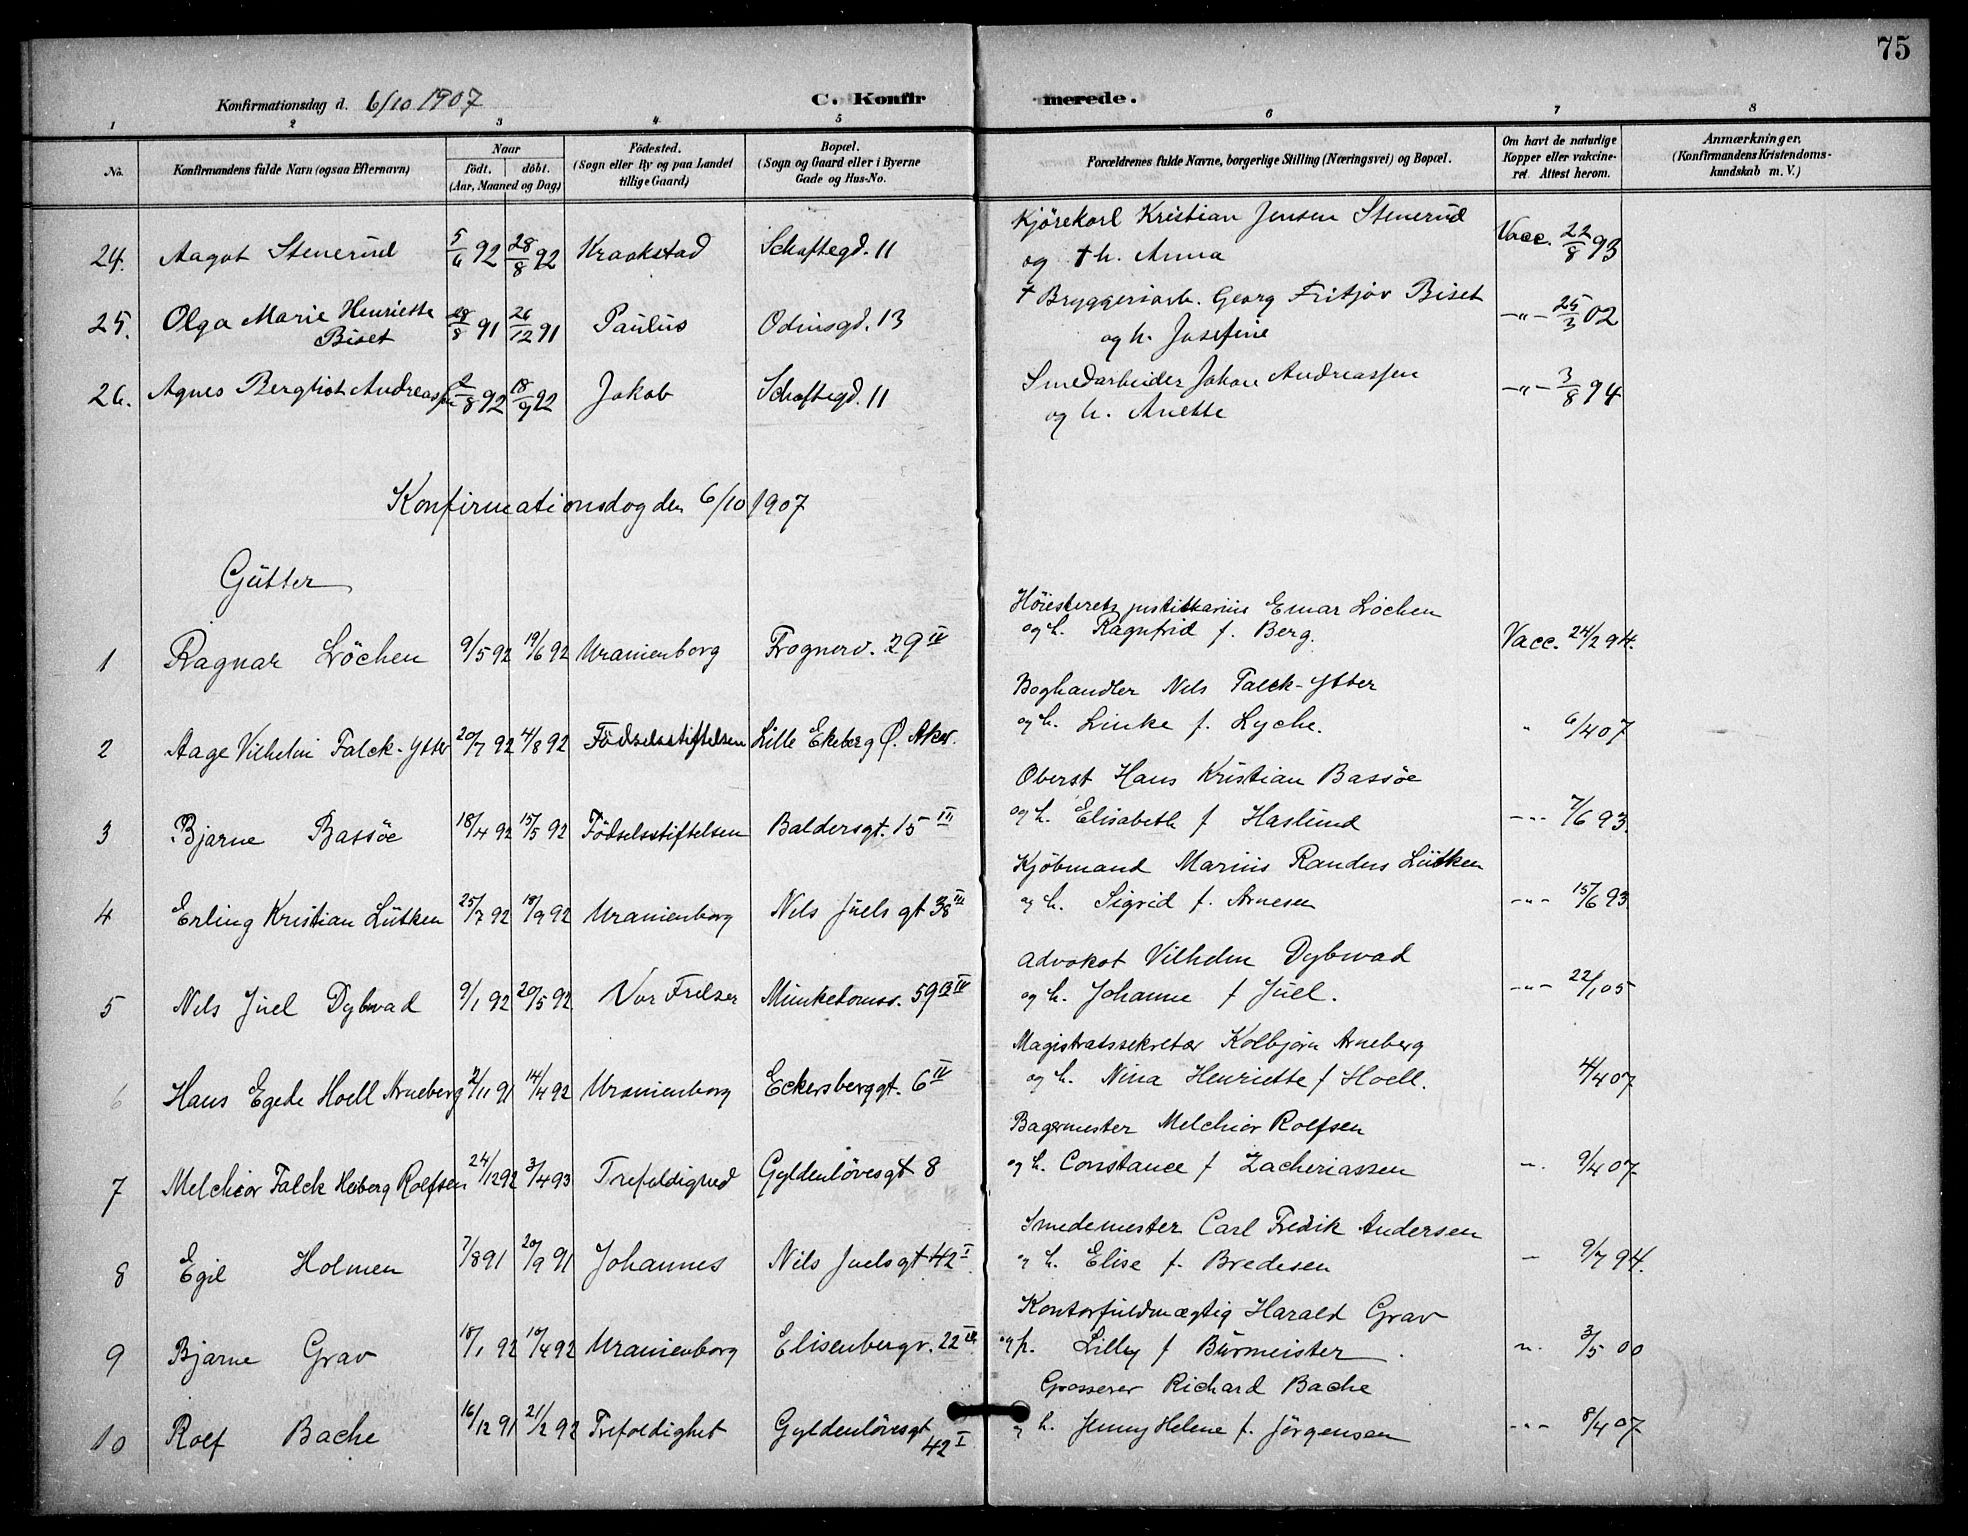 75
Konfirmationsdag d. 6/10 1907
C. Konfirmerede.
1 2 3 4 5 6 7 8
No.
Konfirmandens fulde Navn (ogsaa Efternavn)
Naar
födt. döbt.
(Aar, Maaned og Dag)
Födested.
(Sogn eller By og paa Landet
tillige Gaard)
Bopæl.
(Sogn og Gaard eller i Byerne
Gade og Hus-No.
Forældrenes fulde Navne, borgerlige Stilling (Næringsvei) og Bopæl.
Om havt de naturlige
Kopper eller vakcine-
ret. Attest herom.
Anmærkninger,
(Konfirmandens Kristendoms-
kundskab m. V.)
24. Aagot Stenerud 5/6 92 28/8 92 Kraakstad Schaftegd. 11 Kjörekarl Kristian Jensen Stenerud Vacc. 22/8 93
og † h. Anna
25. Olga Marie Henriette 28/8 91 26/12 91 Paulus Odinsgd. 13 † Bryggeriarb. Georg Fritjov Biset -"- 25/3 02
Biset og h. Josefine
26. Agnes Bergliot Andreassen 2/8 92 18/9 92 Jakob Schaftegd. 11 Smedarbeider Johan Andreassen -"- 3/8 94
og h. Anette
Konfirmationsdag den 6/10 1907
Gutter
1 Ragnar Löchen 9/5 92 19/6 92 Uranienborg Frognerv. 29 IV Höiesterets justitiarius Einar Löchen Vacc. 24/2 94.
og h. Ragnfrid f. Berg.
2 Aage Vilhelm Falck-Ytter 20/7 92 4/8 92 Födselsstiftelsen Lille Ekeberg Ø. Aker. Boghandler Nils Falck-Ytter " 6/4 07
og h. Linke f. Lyche.
3 Bjarne Bassöe 18/4 92 15/5 92 Födselsstiftelsen Baldersgt. 15 III Oberst Hans Kristian Bassöe -"- 7/6 93.
og h. Elisabeth f Haslund
4 Erling Kristian Lütken 25/7 92 18/9 92 Uranienborg Nils Juels gt 38 III Kjöbmand Marius Randers Lütken -"- 15/6 93
og h. Sigrid f. Arnesen
5 Nils Juel Dybwad 9/1 92 20/5 92 Vor Frelser Munkedamsv. 59 B IV Advokat Vilhelm Dybwad -"- 22/1 05
og h. Johanne f Juel.
6 Hans Egede Hoell Arneberg 2/11 91 14/4 92 Uranienborg Eckersberggt. 6 IV Magistratssekretær Kolbjörn Arneberg 4/4 07
og h. Nina Henriette f Hoell.
7 Melchior Falck Heiberg Rolfsen 24/12 92 3/4 93 Trefoldighed Gyldenlövesgt 8 Bagermester Melchior Rolfsen " 9/4 07
og h. Constance f Zacheriassen
8 Egil Holmen 7/8 91 20/9 91 Johannes Nils Juelsgt 42 I Smedemester Carl Fredik Andersen - 9/7 94.
og h. Elise f. Bredesen
9 Bjarne Grav 18/1 92 10/4 92 Uranienborg Elisenbergv. 22 III Kontorfuldmægtig Harald Grav ". 3/5 00
og h. Lilly f Burmeister
10 Rolf Bache 16/12 91 21/2 92 Trefoldighet Gyldenlövesgt 42 I Grosserer Richard Bache -"- 8/4 07
og h. Jenny Helene f. Jörgensen